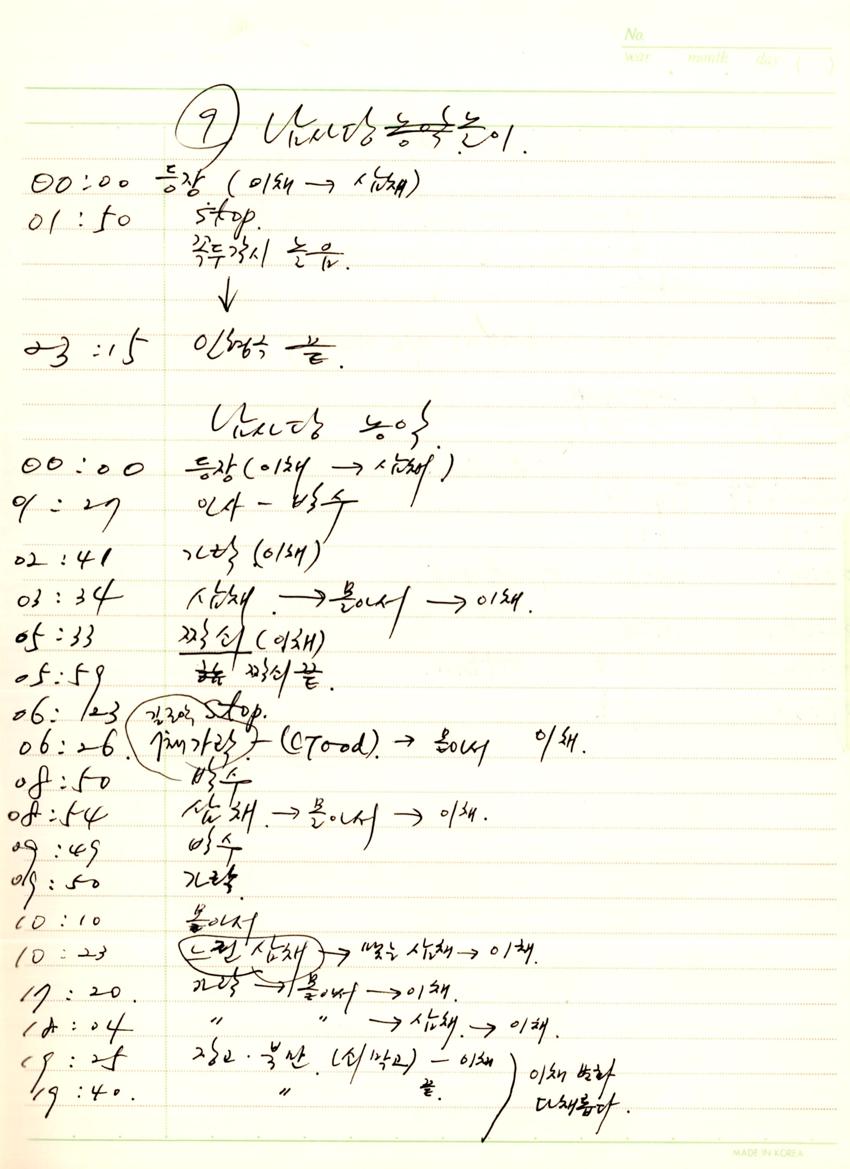 No
year month day ( )
9 남사당 농악놀이.
00:00 등장 (이채 → 삼채)
01:50 stop.
꼭두각시 놀음.
↓
03:15 인형극 끝.
남사당 농악.
00:00 등장(이채 → 삼채)
01:27 인사 - 박수
02:41 가락 (이채)
03:34 삼채 → 몰아서 → 이채.
05:33 짝쇠 (이채)
05:59 짝쇠 끝.
06:23 stop.
길군악
06:26 7채가락 - (Good). → 몰아서 이채.
08:50 박수
08:54 삼채 → 몰아서 → 이채.
09:49 박수
09:50 가락.
10:10 몰아서
10:23 느린 삼채 → 맺는 삼채 → 이채.
17:20. 가락 → 몰아서 → 이채.
18:04 〃 〃 → 삼채. → 이채.
19:25 장고·북만 (쇠막고) - 이채
19:40. 〃 끝.
이채 변화
다채롭다.
MADE IN KOREA